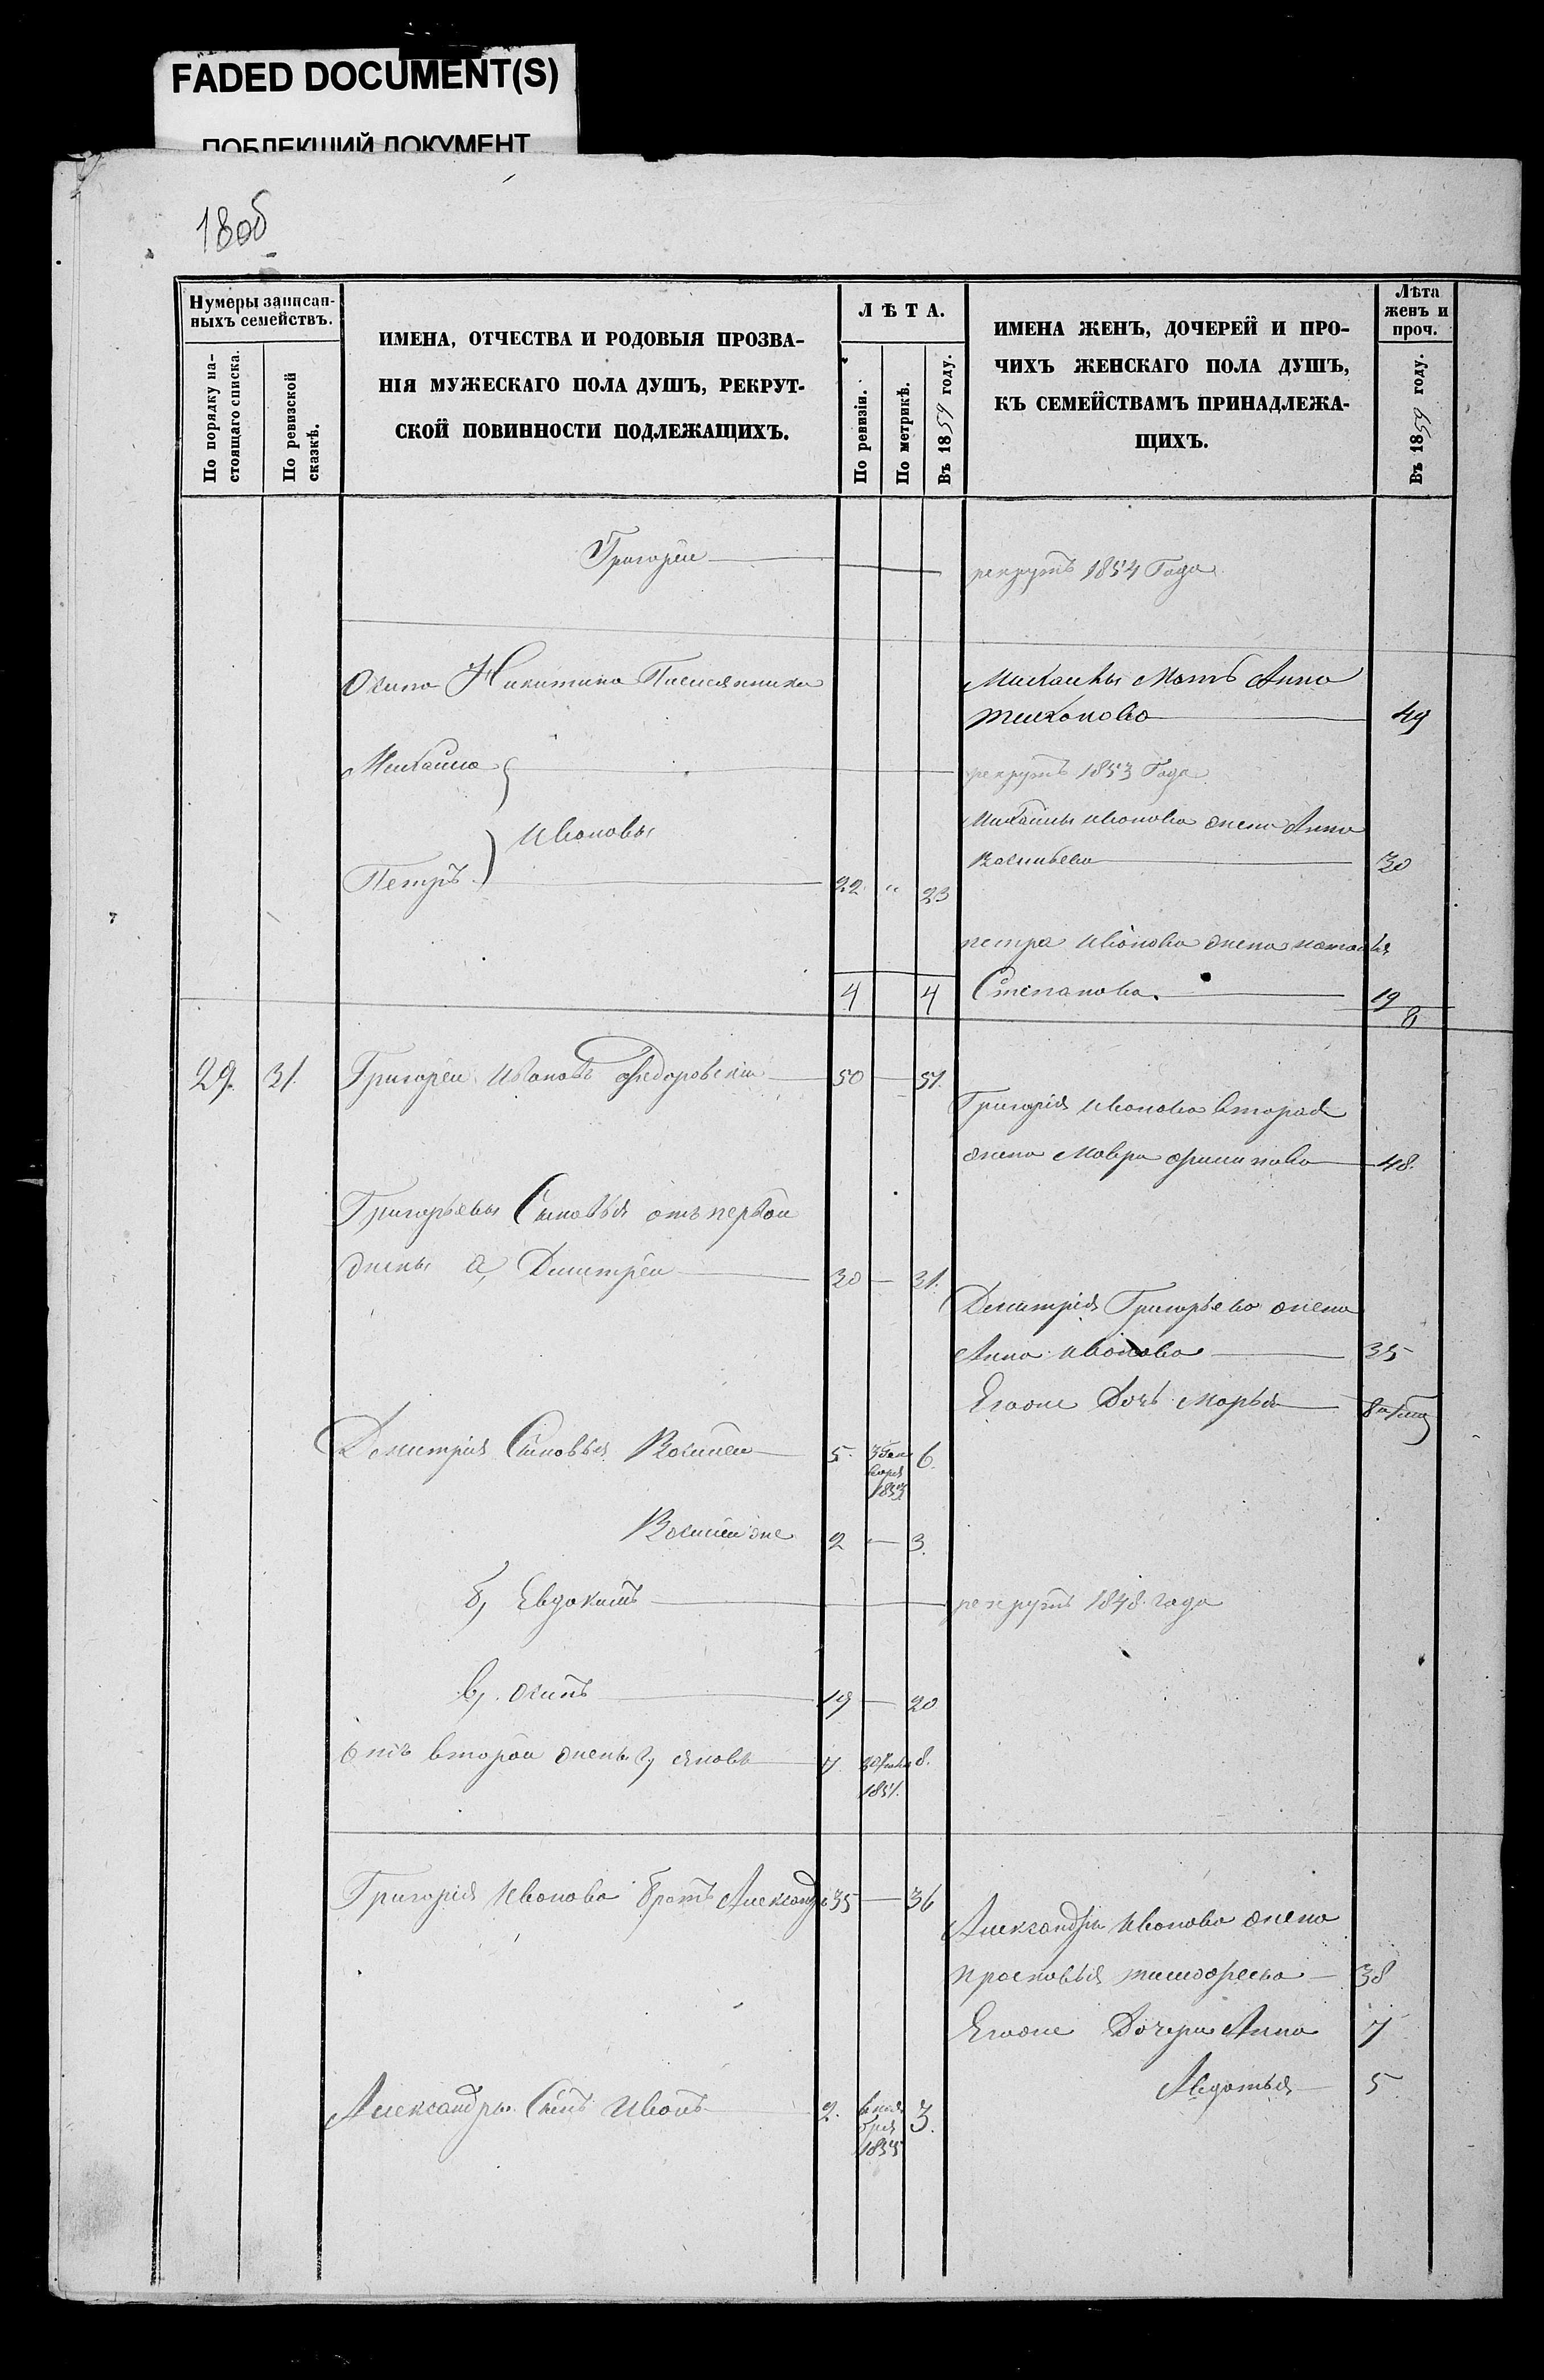 FADED DOCUMENT(S)
ПОБЛЕКШИЙ ДОКУМЕНТ
180б
Нумеры записан-
ныхъ семействъ.
По порядку на-
стоящаго списка.
По ревизской
сказкѣ.
ИМЕНА, ОТЧЕСТВА И РОДОВЫЯ ПРОЗВА-
НІЯ МУЖЕСКАГО ПОЛА ДУШЪ, РЕКРУТ-
СКОЙ ПОВИННОСТИ ПОДЛЕЖАЩИХЪ.
ЛѢТА.
По ревизіи.
По метрикѣ.
Въ 1859 году.
ИМЕНА ЖЕНЪ, ДОЧЕРЕЙ И ПРО-
ЧИХЪ ЖЕНСКАГО ПОЛА ДУШЪ,
КЪ СЕМЕЙСТВАМЪ ПРИНАДЛЕЖА-
ЩИХЪ.
Лѣта
женъ и
проч.
Въ 1859 году.
Григорей
рекрутъ 1854 Года
Осипа Никитина
Михайлы Мать Анна
Тихонова 49
Михайла
рекрутъ 1853 Года
Ивановы
Михайлы Иванова жена Анна
Васильева 30
Петръ 22 " 23
петра Иванова жена наталья
Степанова 19
4 4 8
29. 31. Григорей Ивановъ Федоровский 50 51.
Григорія Иванова вторая
жена Мавра 48.
Григорьевы Сыновья отъ первой
жены а, Дмитрей 30 31.
Дмитрія Григорьева жена
Анна Иванова 35
Егоже Дочь Марья
Дмитрія Сыновья Василей 5. 3 Ген
варя
1853 6.
Василей же 2 3.
б, Евдокимъ
рекрутъ 1848. года
в, Осипъ 19 20
Отъ второй жены г, яковъ 7 1851. 8.
Григорія Иванова братъ Александръ 35 36
Александры Иванова жена
прасковья тимофеева 38
Егоже Дочери Анна 7
Авдотья 5.
Александры Сынъ Иванъ 2. 6 ноя
бря
1855 3.